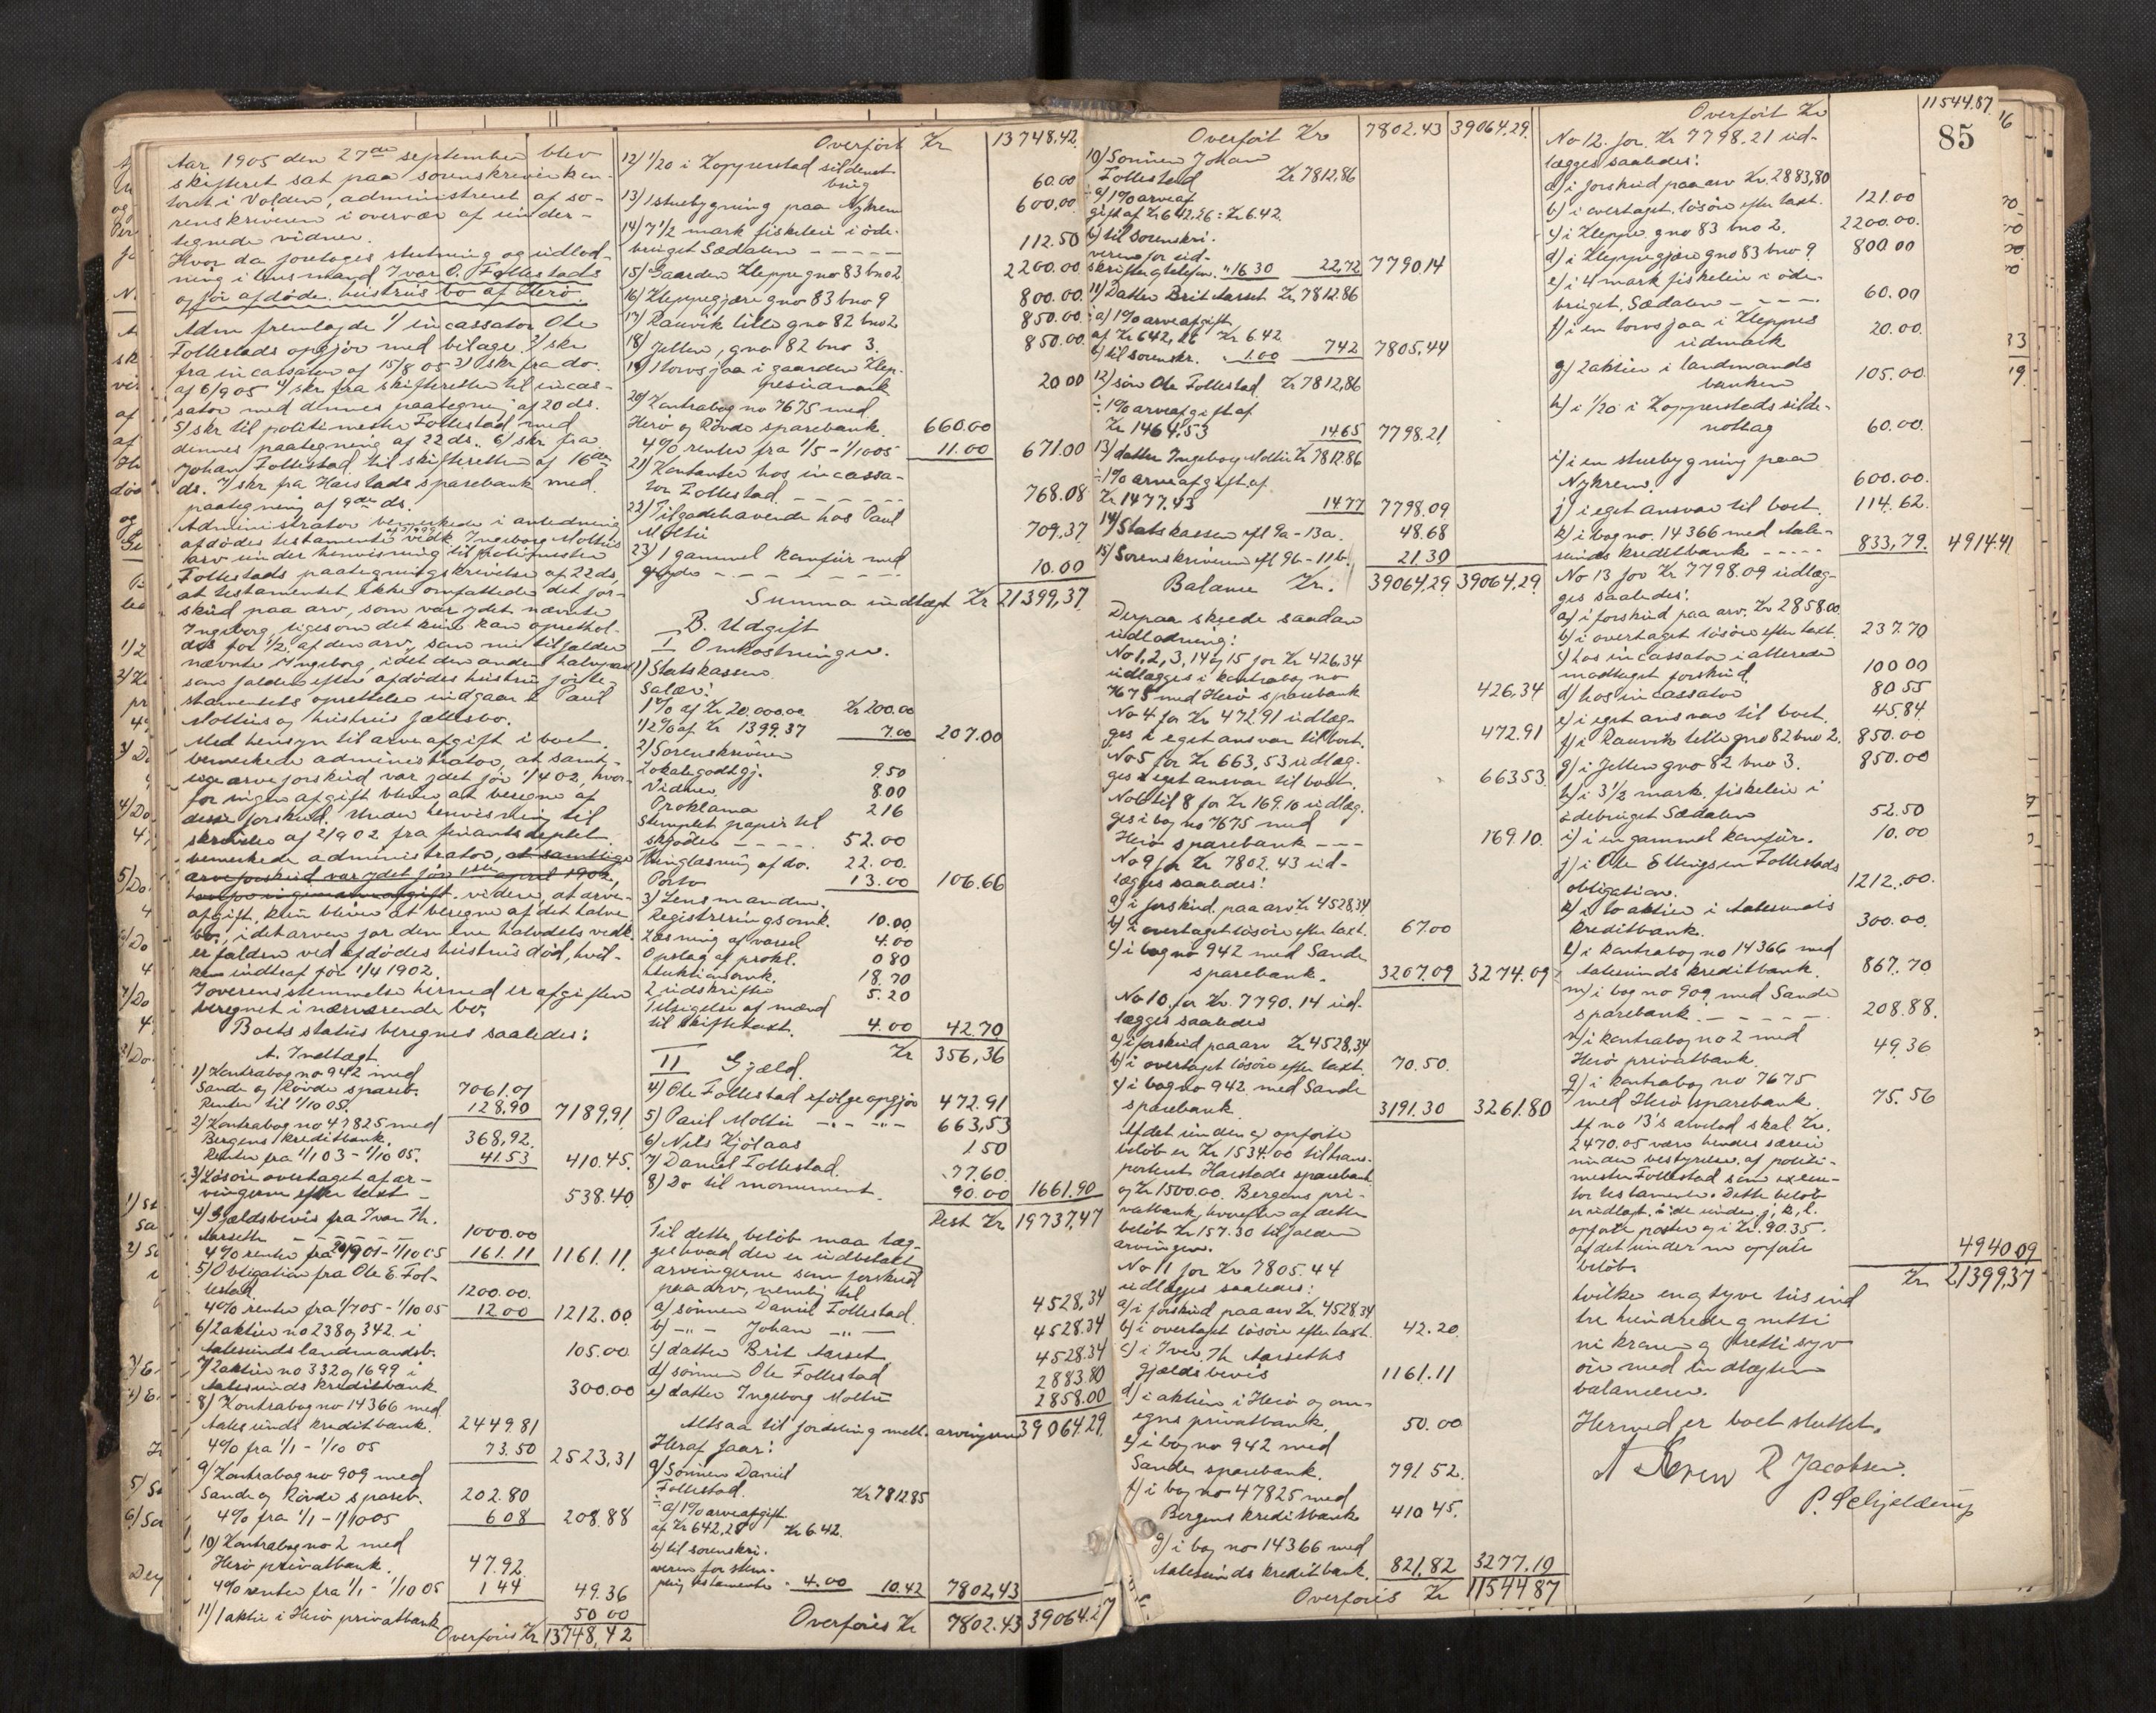 Aar 1905 den 27de september blev
skifteret sat paa sorenskriverkon-
toret i Volden, administreret af so-
renskriveren i overvær af under-
tegnede vidner.
Hvor da foretoges slutning og udlod-
ning i lensmand Ivar O. Follestads
og før afdøde hustrus bo af Herø.
Adm fremlagde 1/ incassator Ole
Follestads opgjør med bilage. 2/ skr
fra incassator af 15/8 05 3/ skr fra do.
af 6/9 05 4/ skr fra skifteretten til incas-
sator med dennes paategning af 20 ds.
5/ skr til politimester Follestad med
dennes paategning af 22 ds. 6/ skr fra
Johan Follestad til skifteretten af 16de
ds. 7/ skr fra Hareidads sparebank med
paategning af 9de ds.
Administrator bemerkede i anledning
afdødes testamente vedk. Ingeborg Moltus
arv under henvisning til politimester
Follestads paategningsskrivelse af 22 ds,
at testamentet ikke omfattede det for-
skud paa arv, som var ydet nævnte
Ingeborg, ligesom det kun kan oprethol-
des for 1/2 af den arv, som nu tilfalder
nævnte Ingeborg, idet den anden halvpart
som falden efter afdødes hustru før te-
stamentets oprettelse indgaar i Paul
Moltus og hustrus fællesbo.
Med hensyn til arveafgift i boet
bemerkede administrator, at samt-
lige arveforskud var ydet før 1/4 02, hvor-
for ingen afgift bliver at beregne af
disse forskud. Under henvisning til
skrivelse af 2/9 02 fra finantsdeptet
bemerkede administrator, at samtlige
arveforskud var ydet før 1ste april 1902,
hvorfor ingen arveafgift videre, at arve-
afgift kun bliver at beregne af det halve
bo, idet arven for den ene halvdels vedk.
er falden ved afdødes hustrus død, hvil-
ken indtraf før 1/4 1902.
I overensstemmelse hermed er afgiften
beregnet i nærværende bo.
Boets status beregnes saaledes:
A. Indtægt
1) Kontrabog no 942 med
Sande og Rövde spareb. 7061.01
Renter til 1/10 05. 128,90 7189,91
2) Kontrabog no 47825 med
Bergens kreditbank. 368,92.
Renter fra 1/1 03 - 1/10 05. 41.53 410.45.
3) Løsøre overtaget af ar-
vingerne efter taxt - 538.40
4) Gjældsbevis fra Ivar Th.
Aarseth - - - - 1000.00
4% renter fra 20/9 01 - 1/10 05 161.11 1161.11.
5) Obligation fra Ole E. Fol-
lestad. 1200.00.
4% renter fra 1/7 05 - 1/10 05 12.00 1212.00
6) 2 aktier no 238 og 342 i
Aalesunds landmandsb. 105.00
7) 2 aktier no 332 og 1699 i
Aalesunds kreditbank 300.00
8) Kontrabog no 14366 med
Aalesunds kreditbank. 2449.81
4% fra 1/1 - 1/10 05 73.50 2523,31
9) Kontrabog no 909 med
Sande og Rövde spareb. 202.80
4% fra 1/1 - 1/10 05 608 208.88
10) Kontrabog no 2 med
Herø privatbank. 47.92.
4% renter fra 1/1 - 1/10 05 144 49.36
11) 1 aktie i Herø privatbank 50 00
Overføres Kr 13748,42
Overført Kr 13748.42.
12) 1/20 i Kopperstad sildenot-
brug 60.00
13) 1 stuebygning paa Nykrem 600.00
14) 7 1/2 mark fiskeleie i øde-
bruget Sædalen - - - - 112.50
15) Gaarden Kleppe gno 83 bno 2 2200.00
16) Kleppegjære gno 83 bno 9 800.00.
17) Rauvik lille gno 82 bno 2 850.00.
18) Jetten, gno 82 bno 3. 850.00
19) 1 torvsjaa i gaarden Klep-
pes udmark 20 00
20) Kontrabog no 7675 med
Herø og Rövde sparebank. 660.00
4% renter fra 1/5 - 1/10 05 11.00 671.00
21) Kontanter hos incassa-
tor Follestad - - - - - 768.08
22) Tilgodehavende hos Paul
Moltu 709,37
23) 1 gammel kamfür med
gryde - - - - - - 10.00
Summa indtægt Kr 21399,37
B. Udgift
I Omkostninger.
1) Statskassen
Salær:
1% af Kr 20.000,00. Kr 200.00
1/2% af Kr 1399.37 7.00 207.00
2) Sorenskriveren
Lokalegodtgj. 9.50
Vidner 8.00
Proklama 216
stemplet papir til
skjøder - - - - 52.00
Thinglæsning af do. 22.00.
Porto 13.00 106.66
3) Lensmanden.
Registreringsomk. 10.00
Læsning af varsel 4.00
Opslag af prokl. 080
Auktionsomk. 18.70
2 udskrifter 5.20
Tilsigelse af mænd
til skiftetaxt. 4.00 42.70
Kr 356,36
II Gjæld.
4) Ole Follestad ifølge opgjør 472.91
5) Paul Moltu -"- -"- 663,53
6) Nils Kjölaas 150
7) Daniel Follestad. 77.60.
8) Do til monument. 90.00 1661.90
Rest Kr 19737,47
Til dette beløb maa læg-
ges hvad der er udbetalt
arvingerne som forskud
paa arv, nemlig til
a) sønnen Daniel Follestad. 4528,34
b) -"- Johan -"- 4528.34
c) datter Brit Aarset 4528.34
d) sønnen Ole Follestad 288380
e) datter Ingeborg Moltu 2858.00
Altsaa til fordeling mell. arvingerne 39064.29.
Heraf faar:
9) Sønnen Daniel
Follestad. Kr 781285
÷ a) 1% arveafgift
af Kr 642,26 Kr 6.42.
b) til sorenskri-
veren for stem-
pling testamente " 4.00 10.42 7802,43
Overføres Kr 7802.43 39064.27
Overført Kr 7802.43 39064.29.
10) Sønnen Johan
Follestad Kr 7812.86
÷ a) 1% arveaf
gift af Kr 642.26: Kr 6.42.
b) til sorenskri-
veren for ud-
skrifter & telefon. " 16 30 22,72 779014
11) Datter Brit Aarset Kr 7812.86
÷ a) 1% arveafgift
af Kr 642,26 Kr 6.42
b) til sorenskr. " 1.00 742 7805,44
12) søn Ole Follestad Kr 7812,86
÷ 1% arveafgift af
Kr 1464.53 1465 7798.21
13) datter Ingeborg Moltu Kr 7812.86
÷ 1% arveafgift af
Kr 1477.43 1477 7798.09
14) Statskassen efl 9a - 13a. 48.68
15) Sorenskriveren efl 9b - 11b. 21.30
Balance Kr. 39064,29 39064.29
Derpaa skeede saadan
udlodning:
No 1, 2, 3, 14 og 15 for Kr 426,34
udlægges i kontrabog no
7675 med Herø sparebank 426,34
No 4 for Kr 472.91 udlæg-
ges i eget ansvar til boet. 472.91
No 5 for Kr 663,53 udlæg-
ges i eget ansvar til boet. 66353
No 6 til 8 for Kr 169.10 udlæg-
ges i bog no 7675 med
Herø sparebank - - - 169.10.
No 9 for Kr 7802.43 ud-
lægges saaledes:
a) i forskud paa arv Kr 4528,34
b) i overtaget løsøre efter taxt. 67.00
c) i bog no 942 med Sande
sparebank. 3207.09 3274.09
No 10 for Kr. 7790.14 ud-
lægges saaledes
a) i forskud paa arv Kr 4528,34
b) i overtaget løsøre efter taxt. 70.50.
c) i bog no 942 med Sande
sparebank 3191.30 3261.80
Af det under c) opførte
beløb er Kr 1534.00 tiltrans-
porteret Hareidads sparebank
og Kr 1500.00. Bergens pri-
vatbank, hvorefter af dette
beløb Kr 157.30 tilfalder
arvingen.
No 11 for Kr 7805.44
udlægges saaledes:
a) i forskud paa arv Kr. 4528.34
b) i overtaget løsøre efter taxt. 42.20.
c) i Iver Th Aarseths
gjældsbevis 1161.11
d) i aktien i Herø og om-
egns privatbank. 50.00
e) i bog no 942 med
Sande sparebank. 791 52.
f) i bog no 47825 med
Bergens kreditbank 410 45.
g) i bog no 14366 med
Aalesunds kreditbank. 821,82 3277.19
Overføres Kr 1154487
85
Overført Kr 11544.87
No 12 for Kr 7798.21 ud-
lægges saaledes:
a) i forskud paa arv Kr. 2883,80
b) i overtaget løsøre efter taxt. 121.00
c) i Kleppe gno 83 bno 2. 2200.00.
d) i Kleppegjære gno 83 bno 9 800 00
e) i 4 mark fiskeleie i øde-
bruget Sædalen - - - -. 60.00
f) i en torvsjaa i Kleppes
udmark 20.00.
g) 2 aktier i landmands
banken 105.00.
h) i 1/20 i Kopperstads silde-
notlag 60.00.
i) i en stuebygning paa
Nykrem. 600.00.
j) i eget ansvar til boet. 114.62.
k) i bog no. 14366 med Aale-
sunds kreditbank - - - - - 833,79. 4914.41
No 13 for Kr 7798.09 udlæg-
ges saaledes:
a) i forskud paa arv. Kr 2858.00
b) i overtaget løsøre efter taxt. 237.70
c) hos incassator i allerede
modtaget forskud. 100 00
d) hos incassator 80 55
e) i eget ansvar til boet. 45.84
f) i Rauvik lille gno 82 bno 2. 850.00
g) i Jetten gno 82 bno 3. 850.00
h) i 3 1/2 mark. fiskeleie i
ødebruget Sædalen 52.50
i) i en gammel kamfür. 10.00
j) i Ole Ellingsen Follestads
obligation. 1212.00.
k) i to aktier i Aalesunds
kreditbank. 300.00.
l) i kontrabog no 14366 med
Aalesunds kreditbank. 867.70
m) i bog no 909 med Sande
sparebank - - - - - 208.88.
n) i kontrabog no 2 med
Herø privatbank. 49.36
o) i kontrabog no 7675
med Herø sparebank 75.56
Af no 13's arvelod skal Kr.
2470.05 være hendes særeie
under bestyrelse af politi-
mester Follestad som execu-
tor testamente. Dette beløb
er udlagt i de under j, k, l.
opførte poster og i Kr. 90.35.
af det under m opførte
beløb. 494009
Kr 21399,37
hvilke en og tyve tusind
tre hundrede og nitti
ni kroner og tretti syv
øre med indtægten
balancerer.
Hermed er boet sluttet.
R Jacobsen.
P. Schjelderup